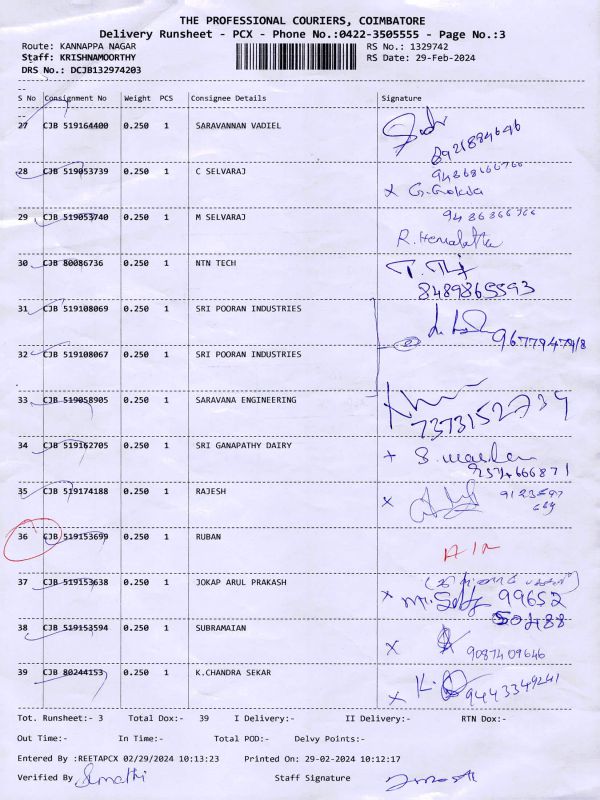 THE PROFESSIONAL COURIERS, COIMBATORE
Delivery Runsheet - PCX - Phone No.:0422-3505555 - Page No.:3
Route: KANNAPPA NAGAR
RS No.: 1329742
Staff: KRISHNAMOORTHY
RS Date: 29-Feb-2024
DRS No.: DCJB132974203
S No Consignment No Weight PCS Consignee Details Signature
27 CJB 519164400 0.250 1 SARAVANNAN VADIEL
8921884646
28 CJB 519053739 0.250 1 C SELVARAJ
x G. Gokila
29 CJB 519053740 0.250 1 M SELVARAJ
R. Hemalatha
30 CJB 80086736 0.250 1 NTN TECH
8489865593
31 CJB 519108069 0.250 1 SRI POORAN INDUSTRIES
32 CJB 519108067 0.250 1 SRI POORAN INDUSTRIES
33 CJB 519058905 0.250 1 SARAVANA ENGINEERING
7373152739
34 CJB 519162705 0.250 1 SRI GANAPATHY DAIRY
35 CJB 519174188 0.250 1 RAJESH
36 CJB 519153699 0.250 1 RUBAN
37 CJB 519153638 0.250 1 JOKAP ARUL PRAKASH
x 99652
50488
38 CJB 519153594 0.250 1 SUBRAMAIAN
x 9087409646
39 CJB 80244153 0.250 1 K.CHANDRA SEKAR
x K. 9443349241
Tot. Runsheet:- 3 Total Dox:- 39 I Delivery:- II Delivery:- RTN Dox:-
Out Time:- In Time:- Total POD:- Delvy Points:-
Entered By :REETAPCX 02/29/2024 10:13:23 Printed On :29-02-2024 10:12:17
Verified By Staff Signature